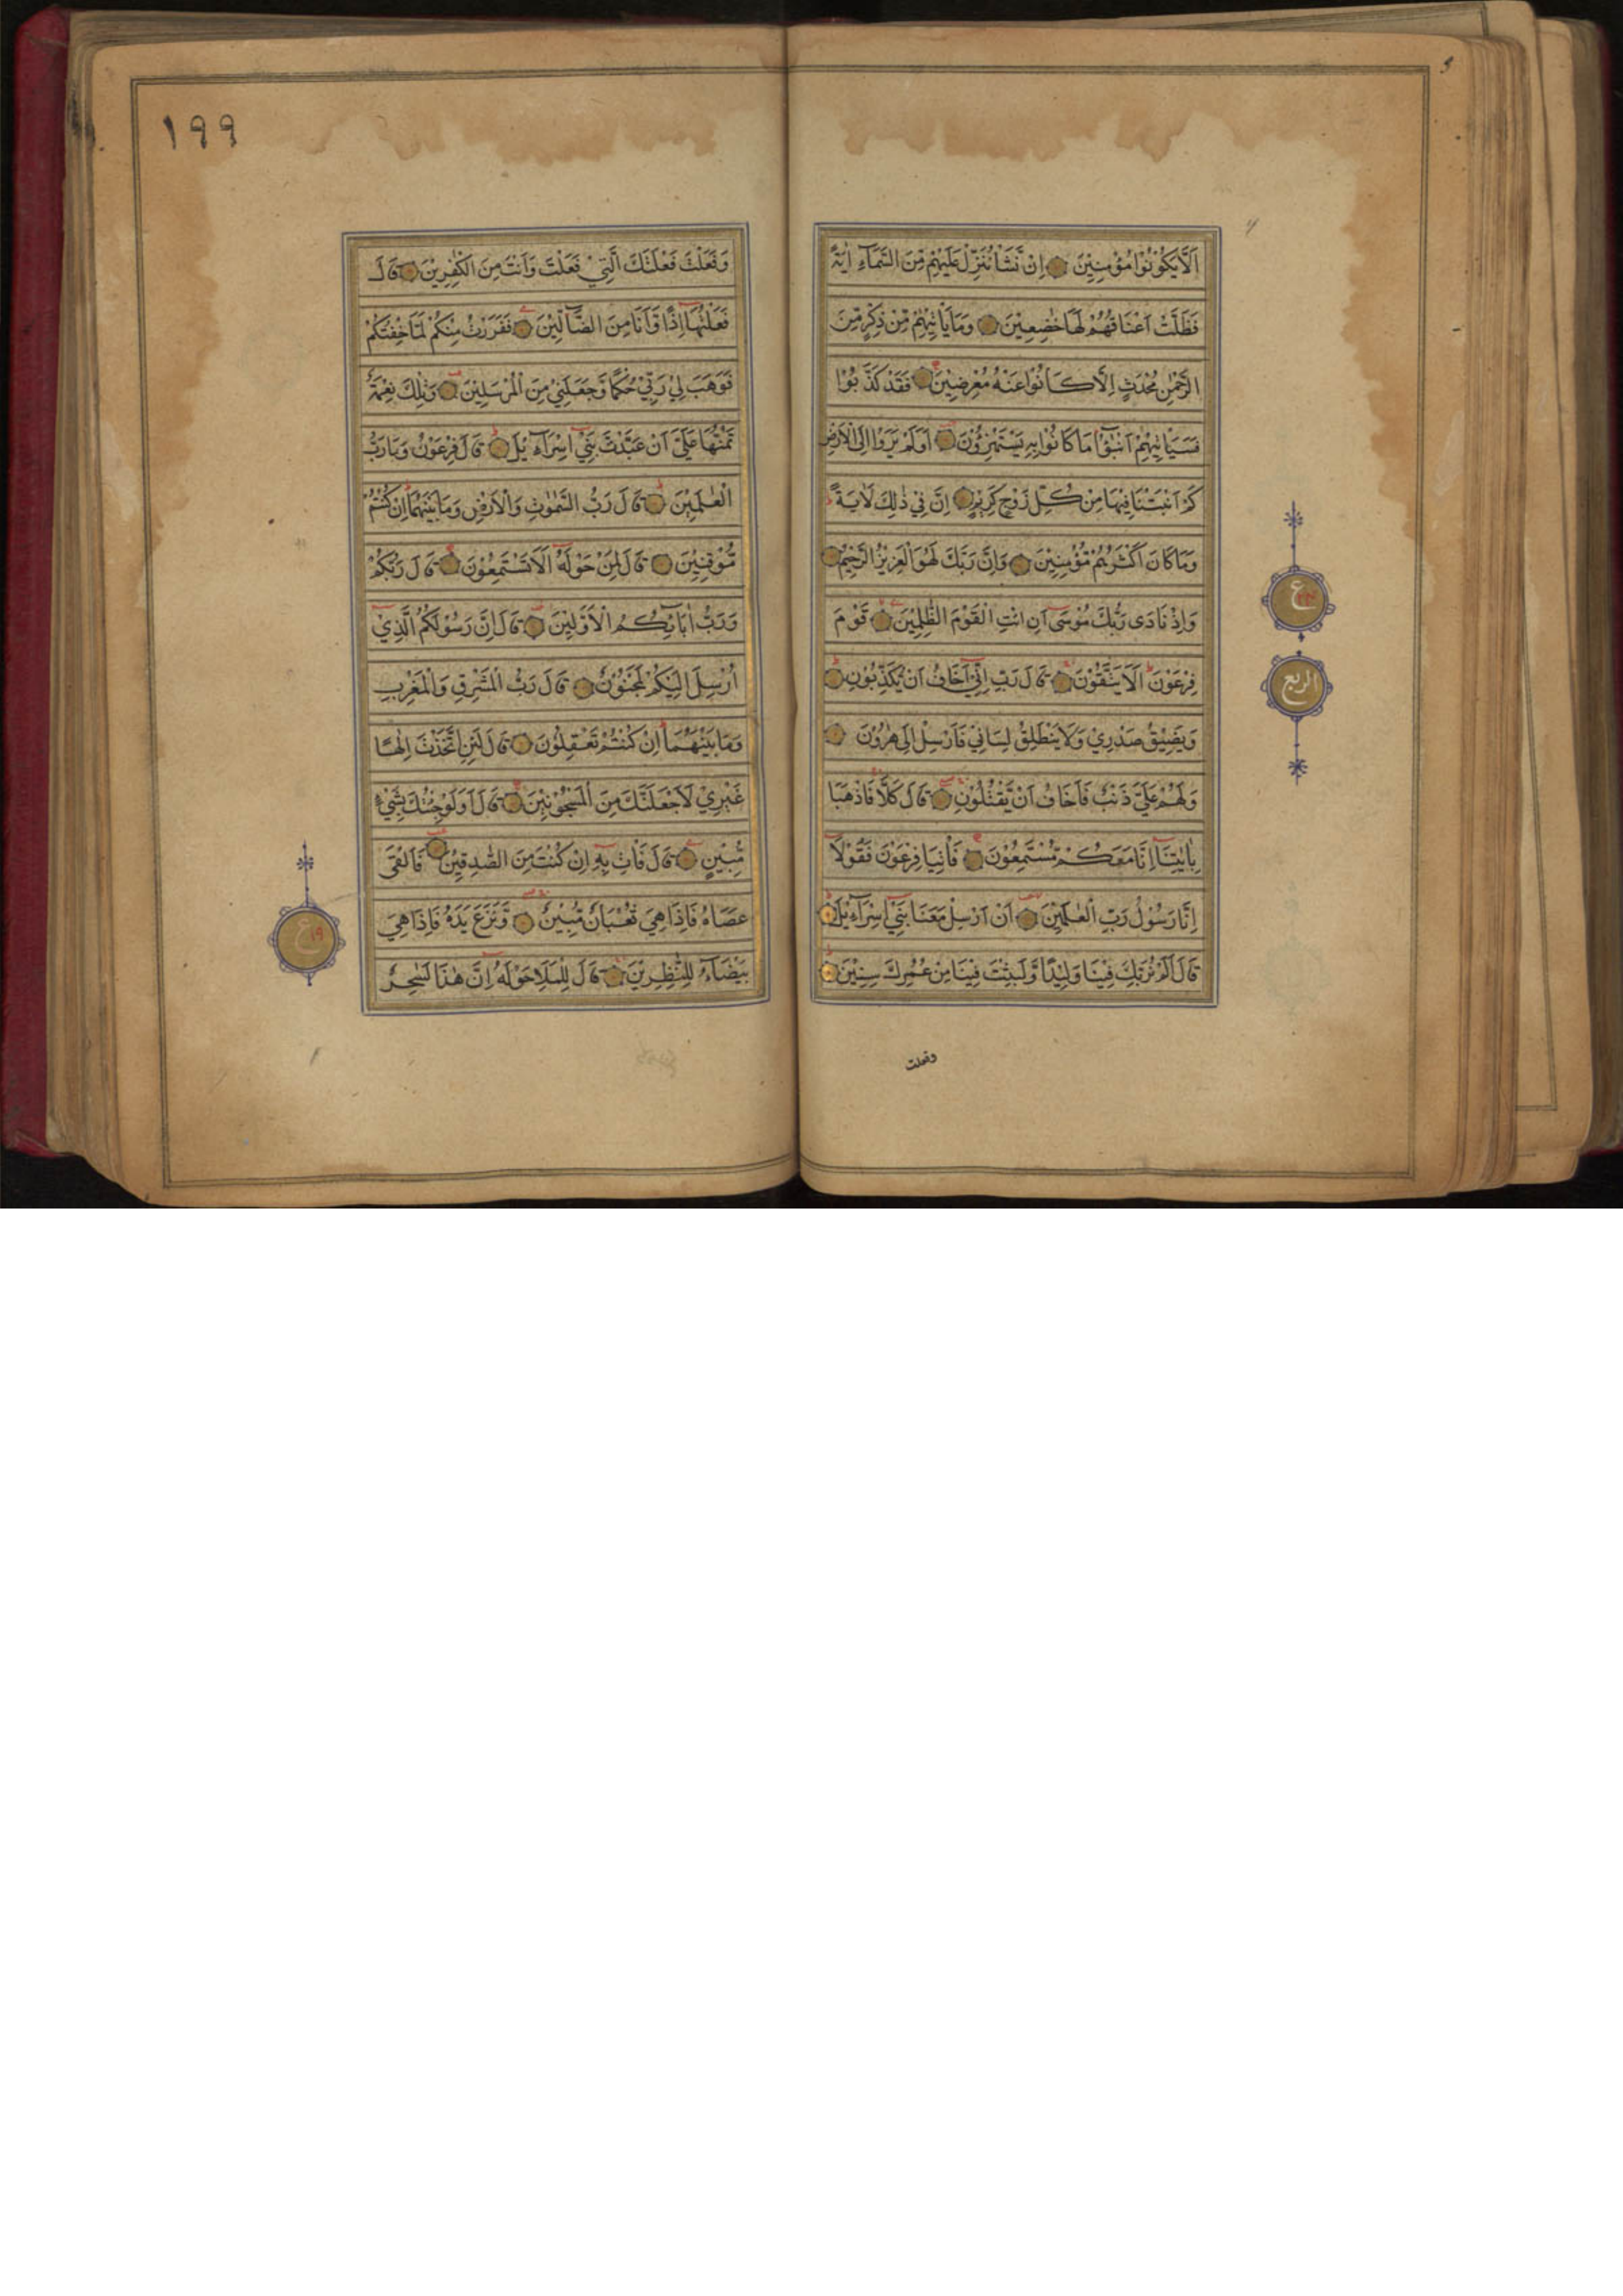 اَلَّا يَكُوْنُوْا مُؤْمِنِيْنَ اِنْ نَّشَاْ نُنَزِّلْ عَلَيْهِمْ مِّنَ السَّمَآءِ اٰيَةً
فَظَلَّتْ اَعْنَاقُهُمْ لَهَا خٰضِعِيْنَ وَمَا يَاْتِيْهِمْ مِّنْ ذِكْرٍ مِّنَ
الرَّحْمٰنِ مُحْدَثٍ اِلَّا كَانُوْا عَنْهُ مُعْرِضِيْنَ فَقَدْ كَذَّبُوْا
فَسَيَاْتِيْهِمْ اَنْبٰٓؤُا مَا كَانُوْا بِهٖ يَسْتَهْزِءُوْنَ اَوَلَمْ يَرَوْا اِلَى الْاَرْضِ
كَمْ اَنْبَتْنَا فِيْهَا مِنْ كُلِّ زَوْجٍ كَرِيْمٍ اِنَّ فِيْ ذٰلِكَ لَاٰيَةً
وَمَا كَانَ اَكْثَرُهُمْ مُّؤْمِنِيْنَ وَاِنَّ رَبَّكَ لَهُوَ الْعَزِيْزُ الرَّحِيْمُ
وَاِذْ نَادٰى رَبُّكَ مُوْسٰٓى اَنِ ائْتِ الْقَوْمَ الظّٰلِمِيْنَ قَوْمَ
فِرْعَوْنَ اَلَا يَتَّقُوْنَ قَالَ رَبِّ اِنِّيْٓ اَخَافُ اَنْ يُّكَذِّبُوْنِ
وَيَضِيْقُ صَدْرِيْ وَلَا يَنْطَلِقُ لِسَانِيْ فَاَرْسِلْ اِلٰى هٰرُوْنَ
وَلَهُمْ عَلَيَّ ذَنْبٌ فَاَخَافُ اَنْ يَّقْتُلُوْنِ قَالَ كَلَّا فَاذْهَبَا
بِاٰيٰتِنَآ اِنَّا مَعَكُمْ مُّسْتَمِعُوْنَ فَاْتِيَا فِرْعَوْنَ فَقُوْلَآ
اِنَّا رَسُوْلُ رَبِّ الْعٰلَمِيْنَ اَنْ اَرْسِلْ مَعَنَا بَنِيْٓ اِسْرَآءِيْلَ
قَالَ اَلَمْ نُرَبِّكَ فِيْنَا وَلِيْدًا وَّلَبِثْتَ فِيْنَا مِنْ عُمُرِكَ سِنِيْنَ
وفعلت
ع
الربع
١٩٩
وَفَعَلْتَ فَعْلَتَكَ الَّتِيْ فَعَلْتَ وَاَنْتَ مِنَ الْكٰفِرِيْنَ قَالَ
فَعَلْتُهَآ اِذًا وَّاَنَا مِنَ الضَّآلِّيْنَ فَفَرَرْتُ مِنْكُمْ لَمَّا خِفْتُكُمْ
فَوَهَبَ لِيْ رَبِّيْ حُكْمًا وَّجَعَلَنِيْ مِنَ الْمُرْسَلِيْنَ وَتِلْكَ نِعْمَةٌ
تَمُنُّهَا عَلَيَّ اَنْ عَبَّدْتَّ بَنِيْٓ اِسْرَآءِيْلَ قَالَ فِرْعَوْنُ وَمَا رَبُّ
الْعٰلَمِيْنَ قَالَ رَبُّ السَّمٰوٰتِ وَالْاَرْضِ وَمَا بَيْنَهُمَا اِنْ كُنْتُمْ
مُّوْقِنِيْنَ قَالَ لِمَنْ حَوْلَهٗٓ اَلَا تَسْتَمِعُوْنَ قَالَ رَبُّكُمْ
وَرَبُّ اٰبَآئِكُمُ الْاَوَّلِيْنَ قَالَ اِنَّ رَسُوْلَكُمُ الَّذِيْٓ
اُرْسِلَ اِلَيْكُمْ لَمَجْنُوْنٌ قَالَ رَبُّ الْمَشْرِقِ وَالْمَغْرِبِ
وَمَا بَيْنَهُمَا اِنْ كُنْتُمْ تَعْقِلُوْنَ قَالَ لَئِنِ اتَّخَذْتَ اِلٰهًا
غَيْرِيْ لَاَجْعَلَنَّكَ مِنَ الْمَسْجُوْنِيْنَ قَالَ اَوَلَوْ جِئْتُكَ بِشَيْءٍ
مُّبِيْنٍ قَالَ فَاْتِ بِهٖٓ اِنْ كُنْتَ مِنَ الصّٰدِقِيْنَ فَاَلْقٰى
عَصَاهُ فَاِذَا هِيَ ثُعْبَانٌ مُّبِيْنٌ وَّنَزَعَ يَدَهٗ فَاِذَا هِيَ
بَيْضَآءُ لِلنّٰظِرِيْنَ قَالَ لِلْمَلَاِ حَوْلَهٗٓ اِنَّ هٰذَا لَسٰحِرٌ
ع ١٩